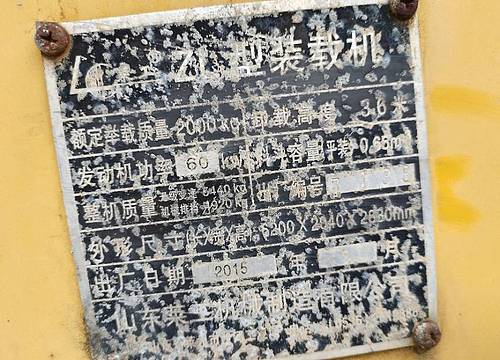 ZL 型装载机
额定举载质量 2000kg 卸载高度 3.6 米
发动机功率 60 kw 斗容量 平装 0.65m³
整机质量 液力变速 5440kg 机械换档 4920kg 出厂编号
外形尺寸(长X宽X高) 6200X2040X2830mm
出厂日期 2015 年 月
山东 机械制造有限公司